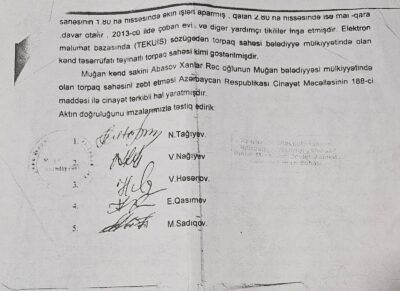 sahəsinin 1.80 ha hissəsində əkin işləri aparmış, qalan 2.80 ha hissəsində isə mal -qara
,davar otarır , 2013-cü ildə çoban evi və digər yardımçı tikililər İnşa etmişdir. Elektron
məlumat bazasında (TEKUİS) sözügedən torpaq sahəsi bələdiyyə mülkiyyətində olan
kənd təsərrüfatı təyinatlı torpaq sahəsi kimi göstərilmişdir.
Muğan kənd sakini Abasov Xanlar Rəc oğlunun Muğan bələdiyyəsi mülkiyyətində
olan torpaq sahəsini zəbt etməsi Azərbaycan Respublikası Cinayət Məcəlləsinin 188-ci
maddəsi ilə cinayət tərkibli hal yaratmışdır.
Aktın doğruluğunu imzalarımızla təstiq edirik:
1. N.Tağıyev.
2. V.Nağıyev
3. V.Həsənov.
4. E.Qasımov
5. M.Sadıqov.